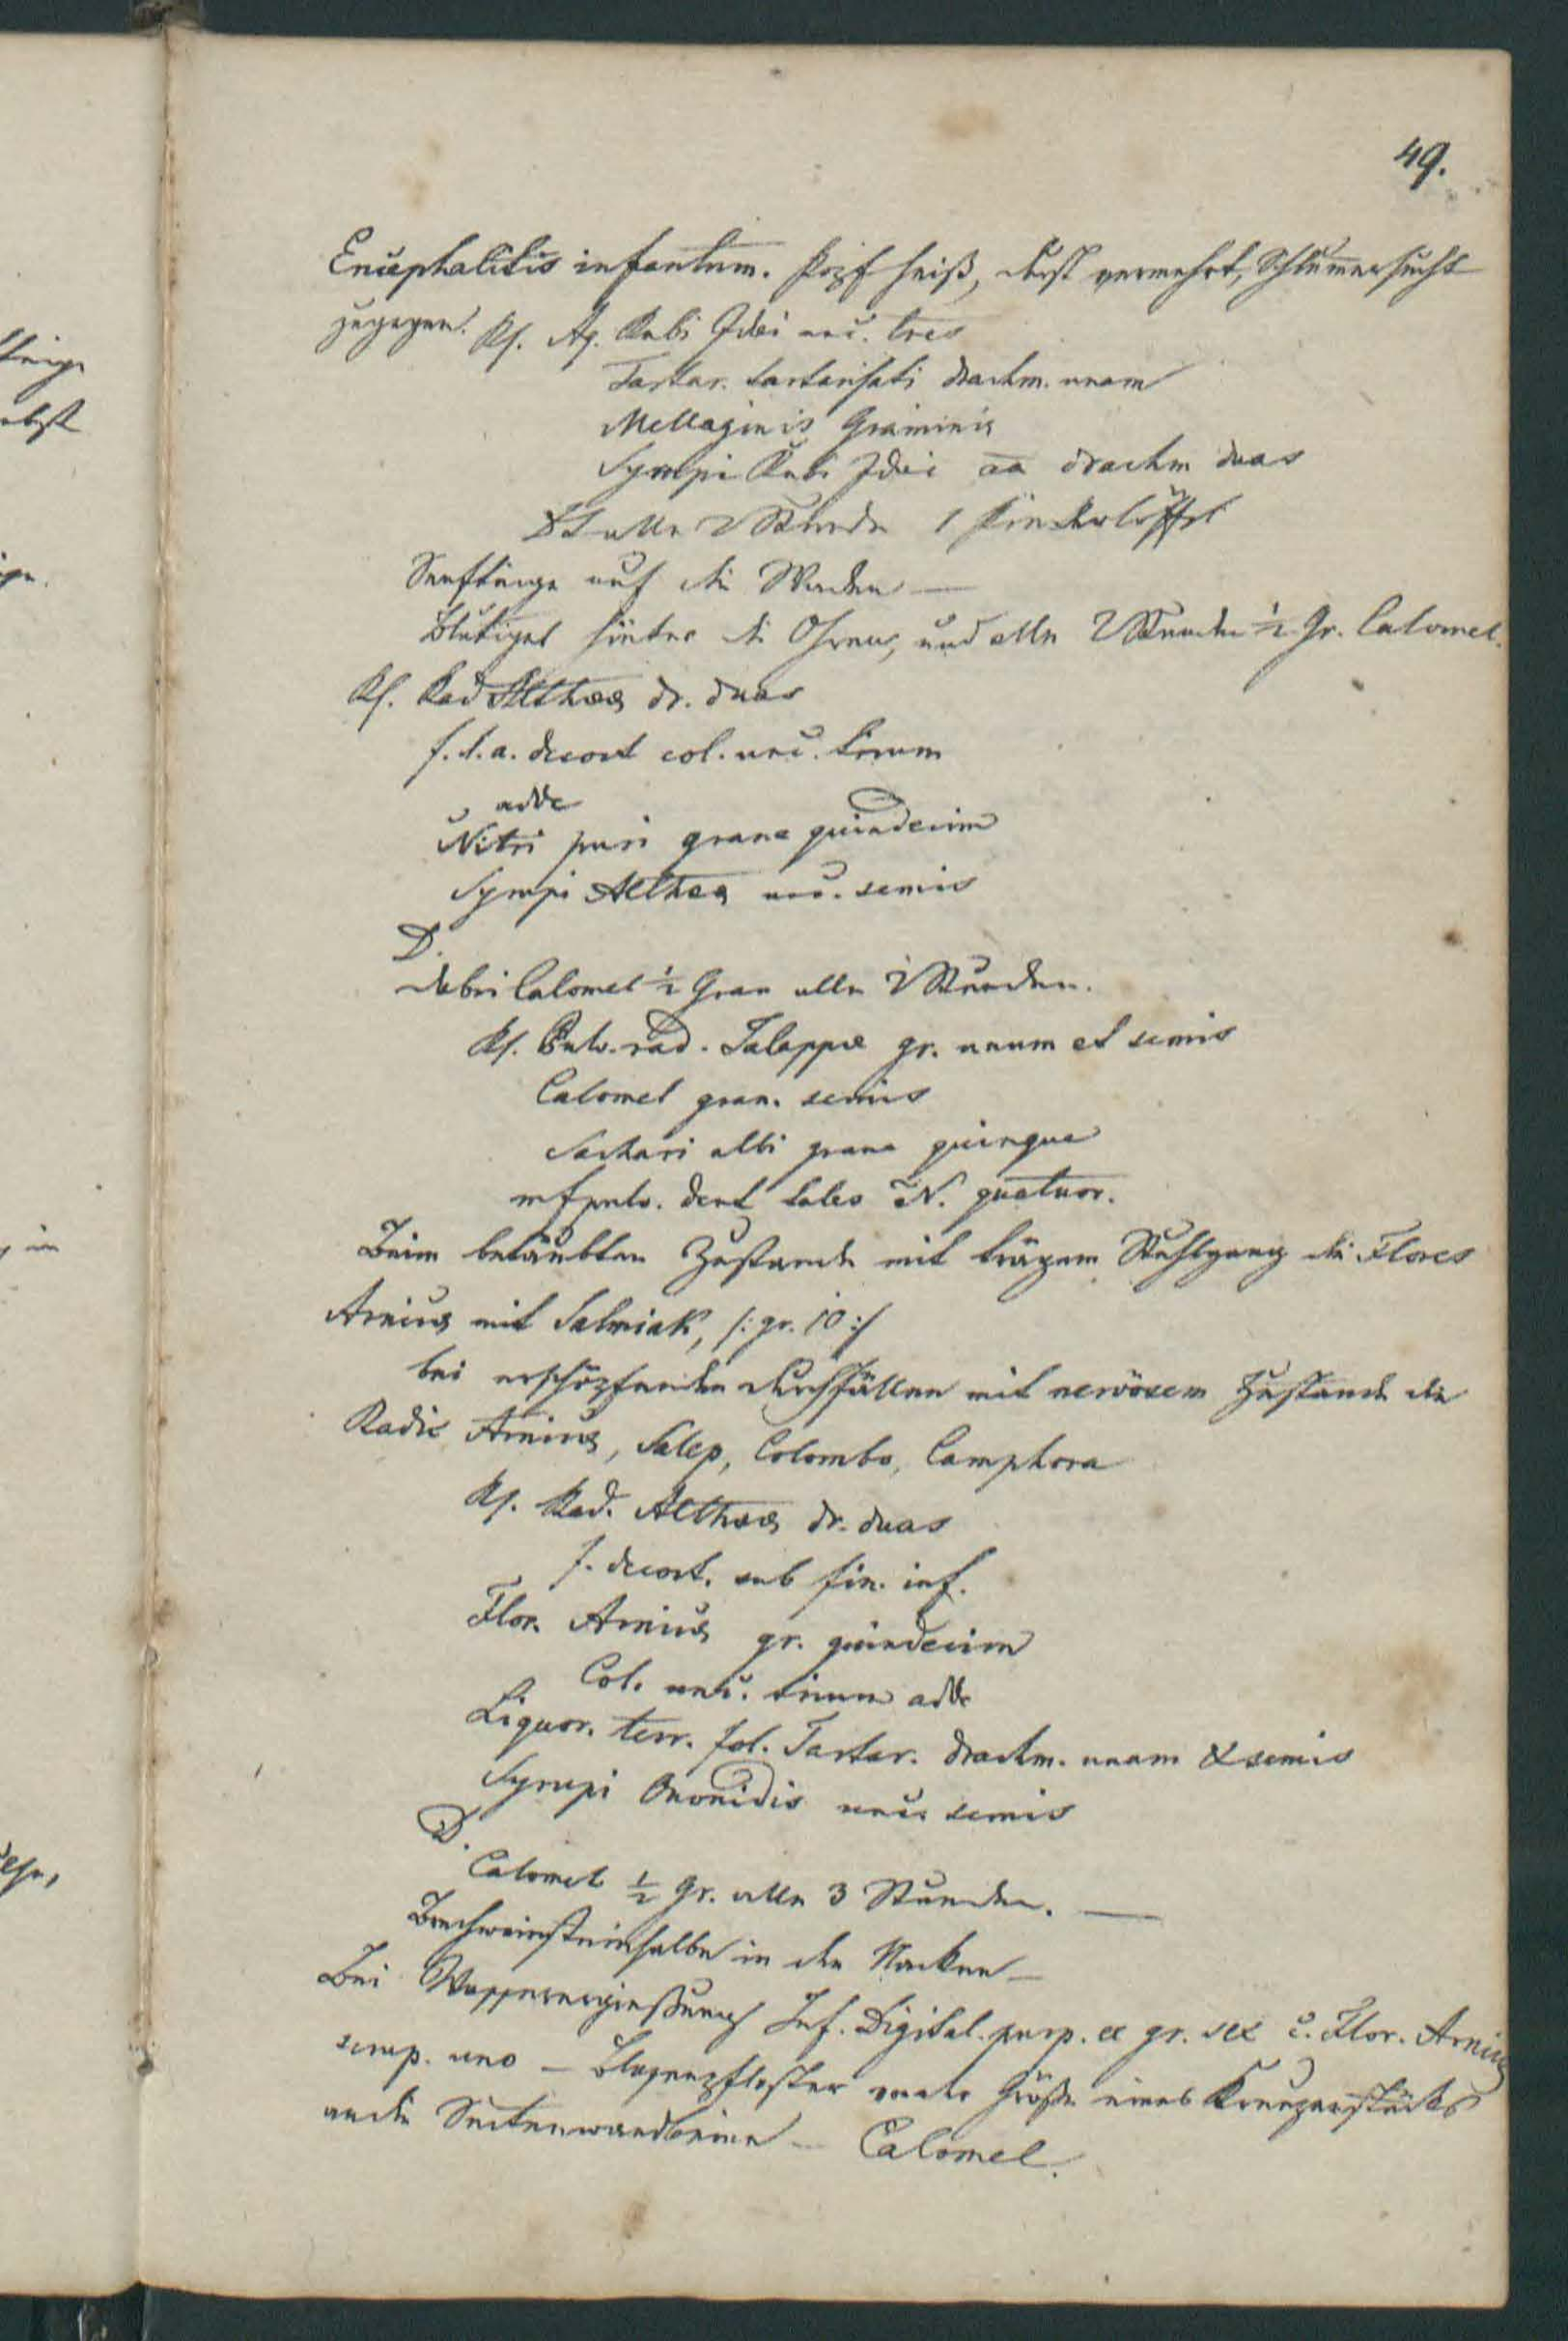 49.
Encephalitis infantum. Kopf heiß, Durst vermehrt, Schlummersucht
zugegen. Rf. Aq. Rubi Idaei unc. tres
Tartar. tartarisati drachm. unam
Mellaginis Graminis
Syrupi Rubi Idaei aa drachm duas
DS alle 2 Stunde 1 Kinderlöffel
Senfteige auf die Waden —
Blutigel hinter die Ohren, und alle 2 Stunden ½ Gr. Calomel.
Rf. Rad Altheae dr. duas
f. l. a. decoct col. unc. trium
adde
Nitri puri grana quindecim
Syrupi Altheae unc. semis
D.
dabei Calomel ½ Gran alle 2 Stunden.
Rf. Pulv. rad. Jalappae gr. unum et semis
Calomel gran. semis
Sachari albi grana quinque
mfpulv. dent tales N. quatuor.
Beim betäubten Zustande mit trägem Stuhlgang die Flores
Arnicae mit Salmiak, /: gr. 10 :/
bei erschöpfenden Durchfällen mit nervösem Zustande die
Radic Arnicae, Salep, Colombo, Camphora
Rf. Rad. Altheae dr. duas
f. decoct. sub fin. inf.
Flor. Arnicae gr. quindecim
Col. unc. trium adde
Liquor. terr. fol. Tartar. drachm. unam & semis
Syrupi Ononidis unc. semis
D.
Calomel ½ Gr. alle 3 Stunden. —
Brechweinsteinsalbe in den Nacken —
Bei Wasserergießung Inf. Digital. purp. ex gr. sex c. Flor. Arnicae
scrup. uno — Blasenpflaster von der Größe eines Kreuzerstücks
an die Seitenwandbeine — Calomel.